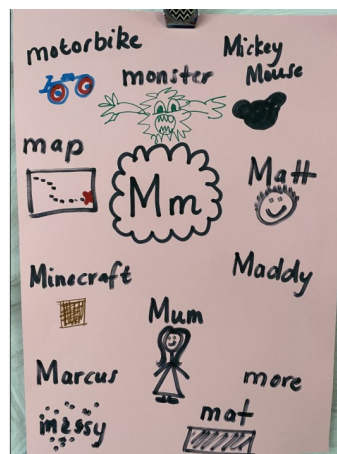 motorbike
Mickey
Mouse
monster
map
Mm
Matt
Minecraft
Maddy
Mum
Marcus
more
messy
mat